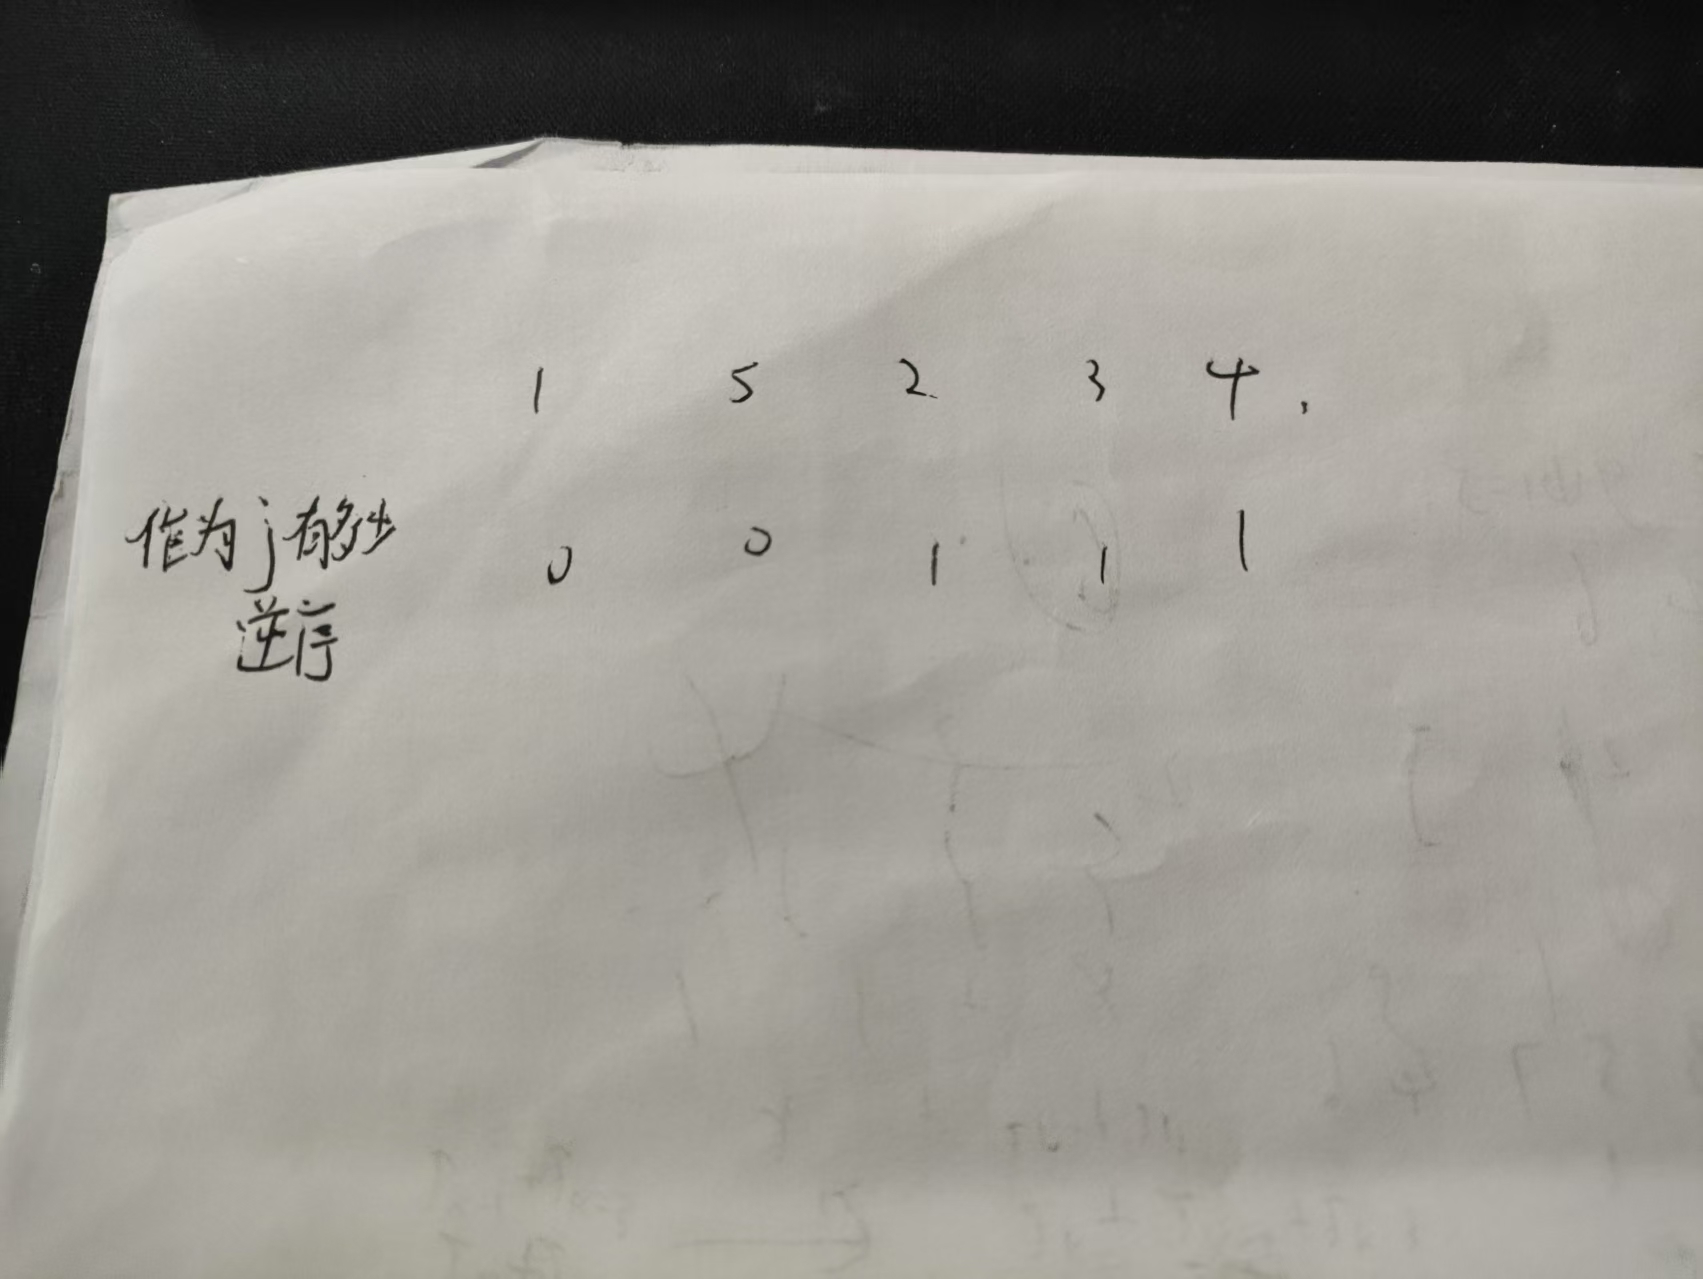 1 5 2 3 4 .
作为j有多少 0 0 1 1 1
逆序